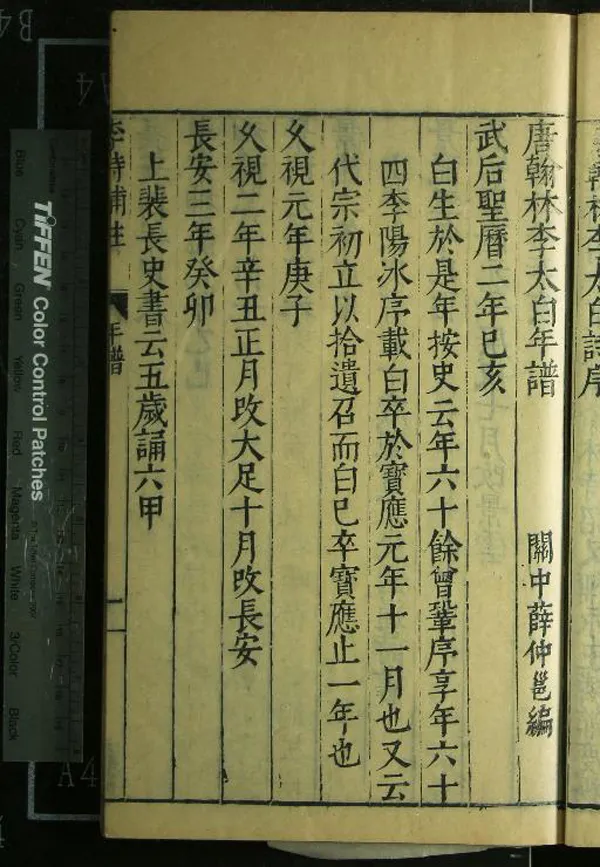 唐翰林李太白年譜
關中薛仲邕編
武后聖曆二年己亥
白生於是年按史云年六十餘曾鞏序享年六十
四李陽冰序載白卒於寶應元年十一月也又云
代宗初立以拾遺召而白已卒寶應止一年也
久視元年庚子
久視二年辛丑正月改大足十月改長安
長安三年癸卯
上裴長史書云五歲誦六甲
李詩補註
年譜
一
TIFFEN Color Control Patches
Blue
Cyan
Green
Yellow
Red
Magenta
White
3/Color
Black
B4
A4
A4